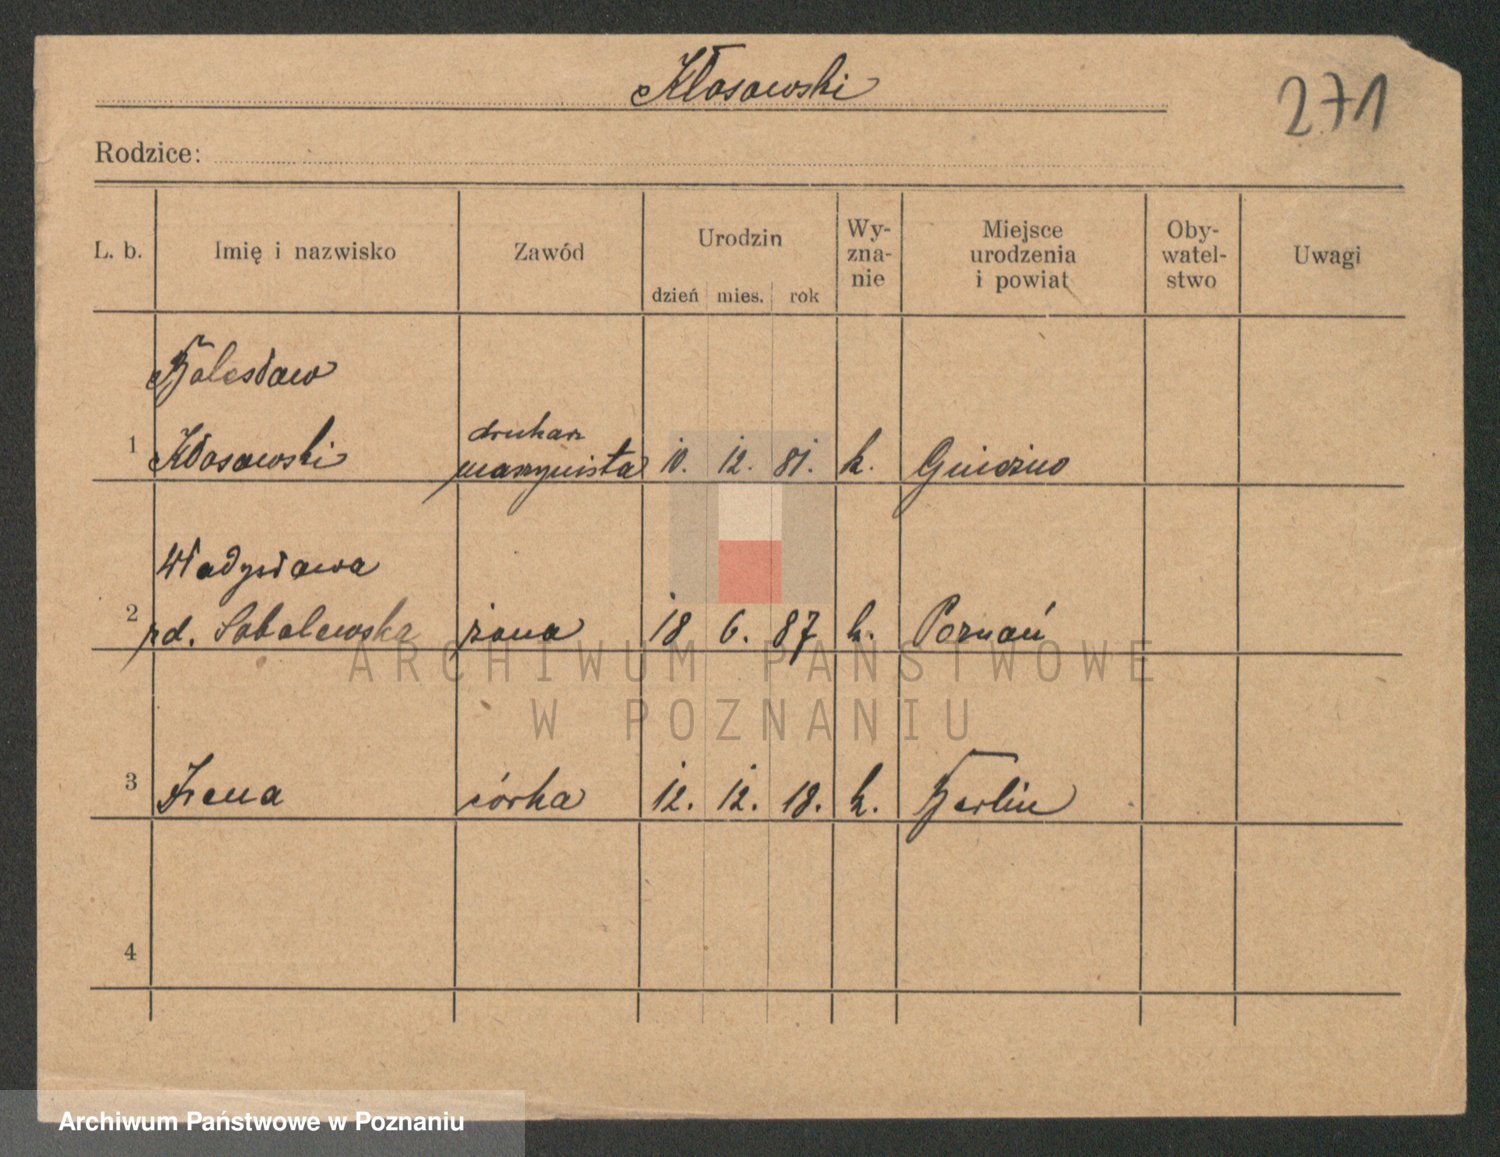 Kłosowski
271
Rodzice:
L. b. Imię i nazwisko Zawód Urodzin dzień mies. rok Wy-zna-nie Miejsce urodzenia i powiat Oby-watel-stwo Uwagi
Bolesław
drukarz
1 Kłosowski maszynista 10. 12. 81. k. Gniezno
Władysława
2 zd. Sobolewska żona 18 6. 87 k. Poznań
ARCHIWUM PAŃSTWOWE
W POZNANIU
3 Irena córka 12. 12. 18. k. Berlin
4
Archiwum Państwowe w Poznaniu